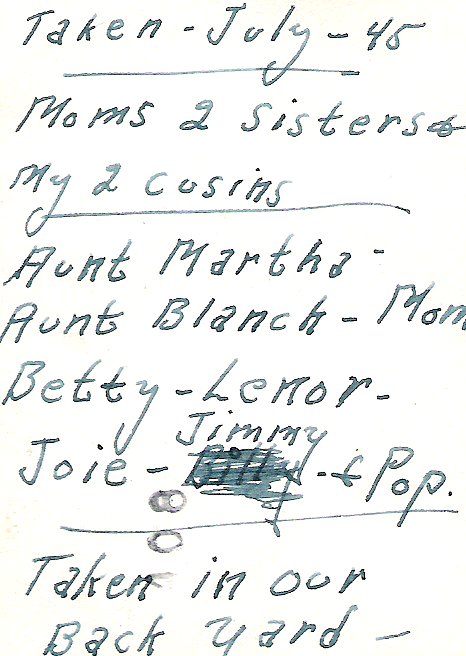 Taken - July - 45
Moms 2 Sisters &
My 2 cusins
Aunt Martha -
Aunt Blanch - Mom
Betty - Lenor -
Jimmy
Joie - Billy - & Pop.
Taken in our
Back yard -